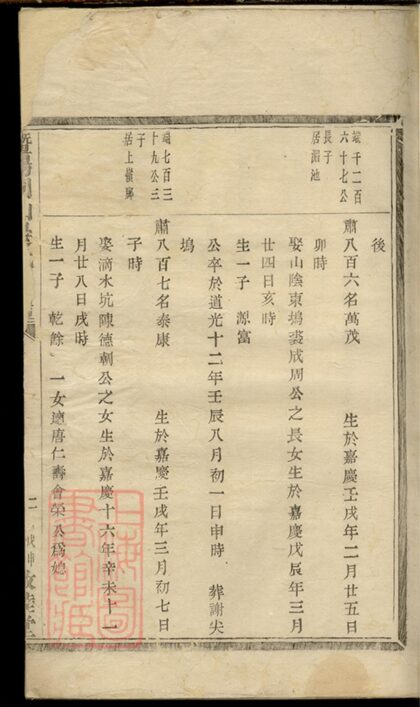 端千二百
六十七公
長子
居湄池
端七百三
十九公三
子
居上嶺腳
後
肅八百六名萬茂 生於嘉慶壬戌年二月廿五日
卯時
娶山陰東塢裘成周公之長女生於嘉慶戊辰年三月
廿四日亥時
生一子 源富
公卒於道光十二年壬辰八月初一日申時 葬謝尖
塢
肅八百七名泰康 生於嘉慶壬戌年三月初七日
子時
娶滴水坑陳德朝公之女生於嘉慶十六年辛未十一
月廿八日戌時
生一子 乾餘 一女適唐仁壽會榮公為媳
上海圖
書館藏